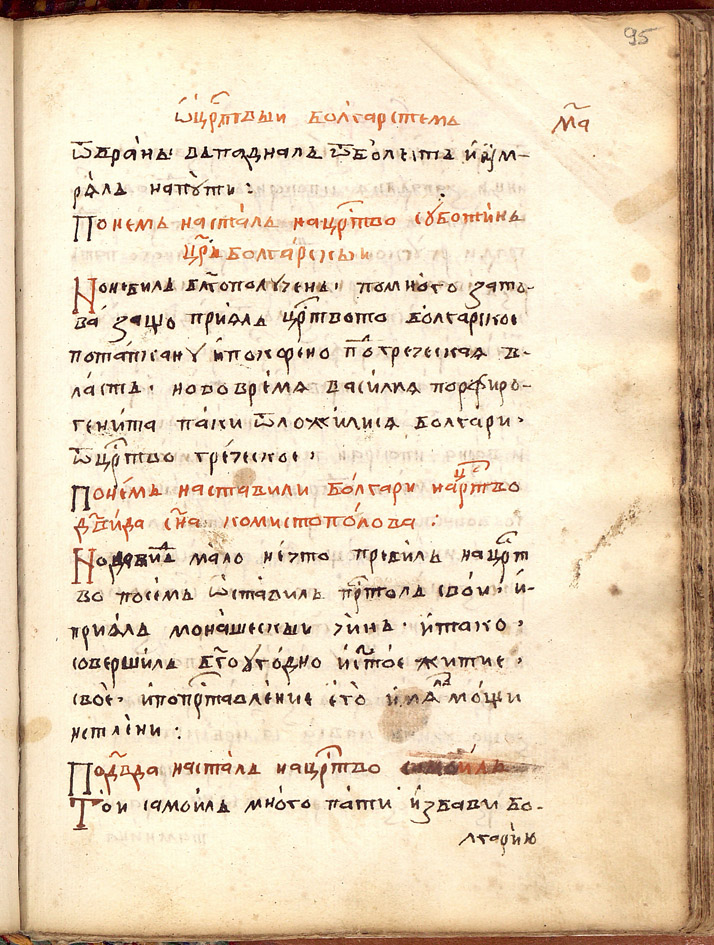 95
Ѡ цр҃твыи болгарстемъ
м҃а
ѿ бранъ· въпадналъ ѿ болестъ и оум-
рѧлъ напꙋти :
Понемъ насталъ нацр҃тво сꙋботинъ
цр҃ъ болгарскыи
Но небилъ бл҃гополꙋченъ· помного зато-
ва защо приѧлъ цр҃твото болгарское
потъпкану и покорено по греческаѧ в-
ластъ· но во времѧ василиѧ порфиро-
генита паки ѿложилисѧ болгари·
ѿ цр҃тво греческое·
Понемъ наставили болгари нацр҃тво
дв҃ида сн҃а комистополова :
Но давидъ мало нечто пребилъ нацр҃т
во посемъ ѡставилъ прⷭ҇толъ свои· и-
приѧлъ монашескыи чинъ· и тако·
совершилъ бл҃гоугодно и ст҃ое житие·
свое· и по прⷭ҇тавление его ꙗвилъ мощи
нетлени :
По дв҃да насталъ нацр҃тво самоилъ
Тои самоилъ много пати избави бо-
лгарию